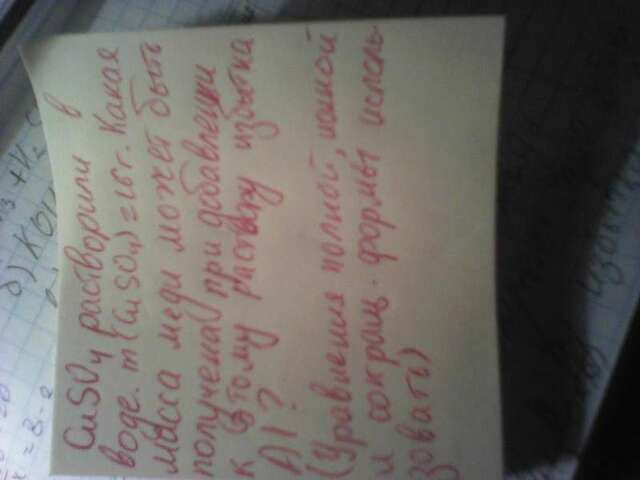 CuSO4 растворили в
воде. m (CuSO4) = 16 г. Какая
масса меди может быть
получена при добавлении
к этому раствору избытка
Al?
(Уравнения полной, ионной
и сокращ. формы исполь-
зовать)